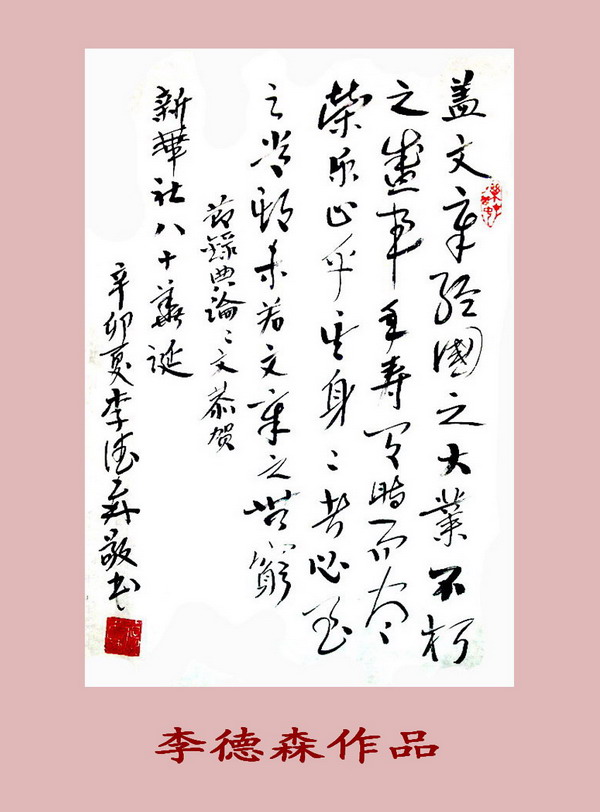 盖文章经國之大業不朽
之盛事年寿有時而尽
榮乐止乎其身二者必至
之常期未若文章之無窮
节錄典論々文恭贺
新華社八十華诞
辛卯夏李德森敬书
李德森作品